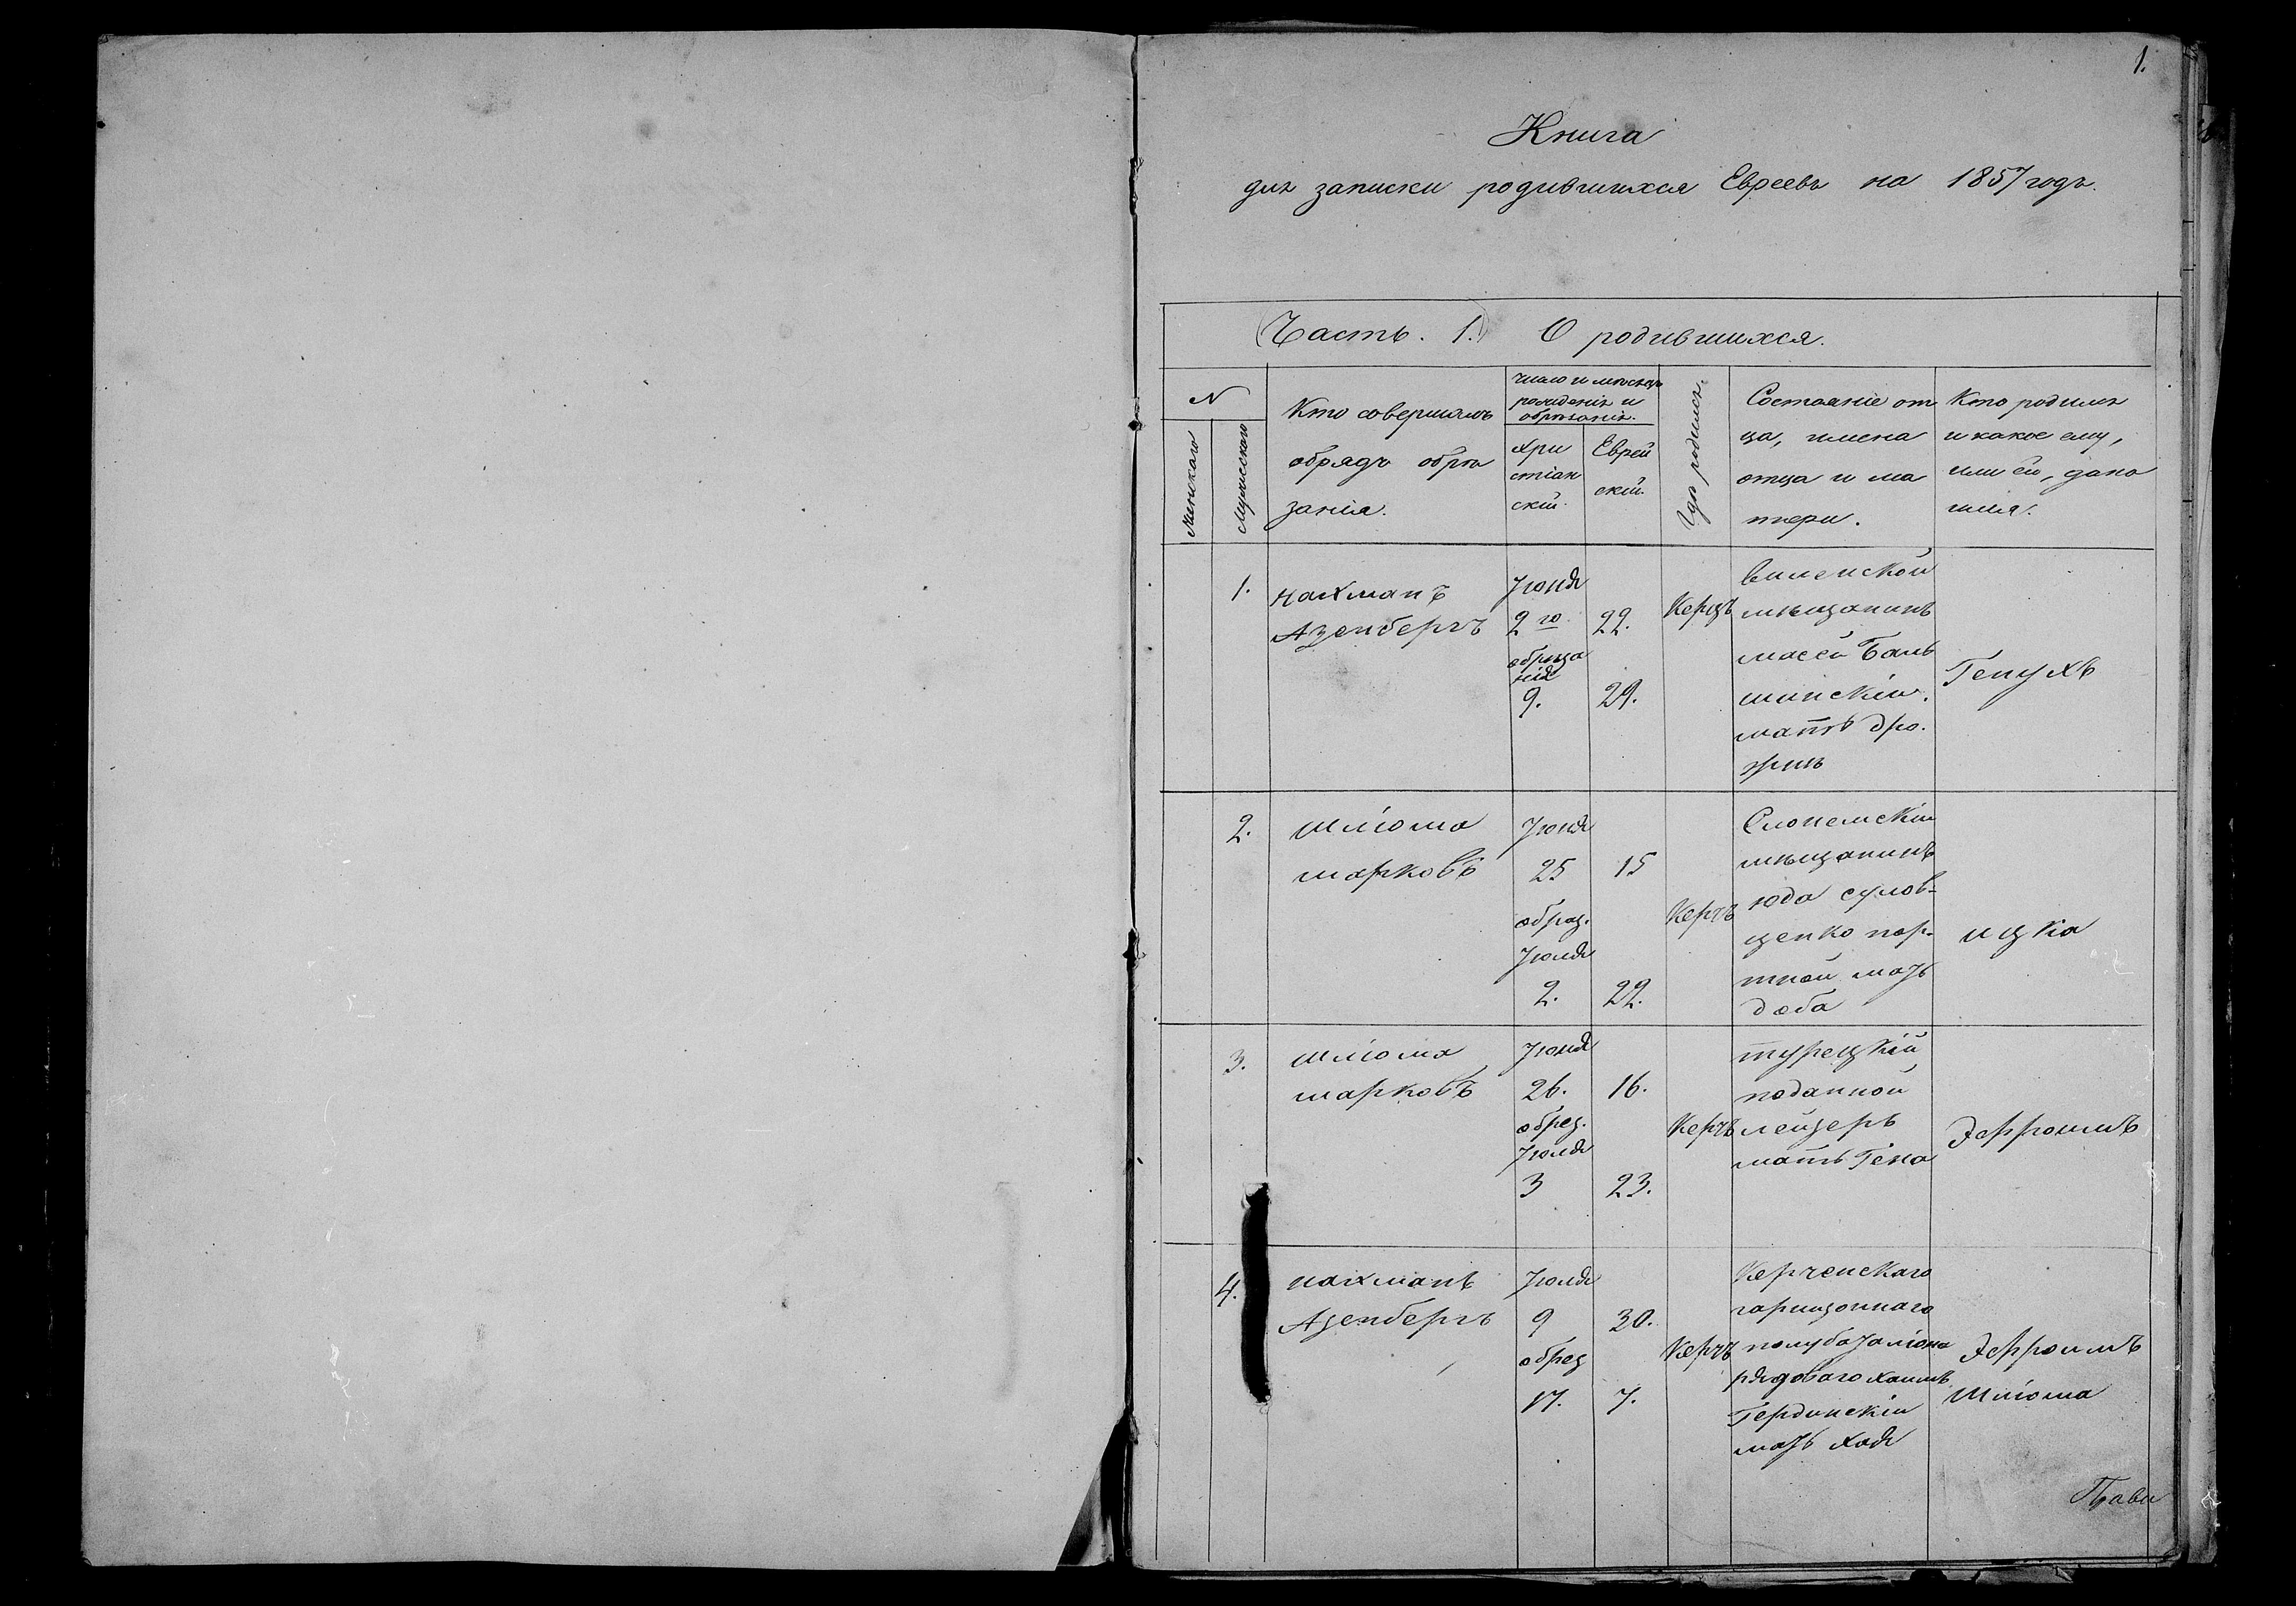 1.
Книга
для записки родившихся Евреевъ на 1857 годъ.
(Часть. 1.) О родившихся.
N
Женскаго
Мужескаго
Кто совершалъ
обрядъ обрѣ
занія.
число и мѣсяцъ
рожденія и
обрѣзанія.
Хри
стіан
скій.
Еврей
скій.
Гдѣ родился.
Состояніе от
ца, имена
отца и ма
тери.
Кто родился
и какое ему,
или ей, дано
имя.
1.
нахманъ
Азенбергъ
Июня
2го
22.
обрѣза
нія
9.
29.
Керчъ
виленской
мѣщанинъ
мать
Генухъ
2.
шліома
марковъ
Июня
25
15
обрез.
Июля
2.
22.
Керчъ
Слонемскій
мѣщанинъ
юда сулов-
ценко пор-
тной мать
доба
ицка
3.
шліома
марковъ
Июня
26.
16.
обрез.
Июля
3
23.
Керчъ
турецкій
поданной
лейзеръ
мать Гена
Эфроимъ
4.
нахманъ
Азенбергъ
Июля
9
30.
обрез
17.
7.
Керчъ
Керченскаго
гарнизоннаго
полубаталіона
рядоваго хаимъ
Гердинскій
мать хая
Эфроимъ
Шліома